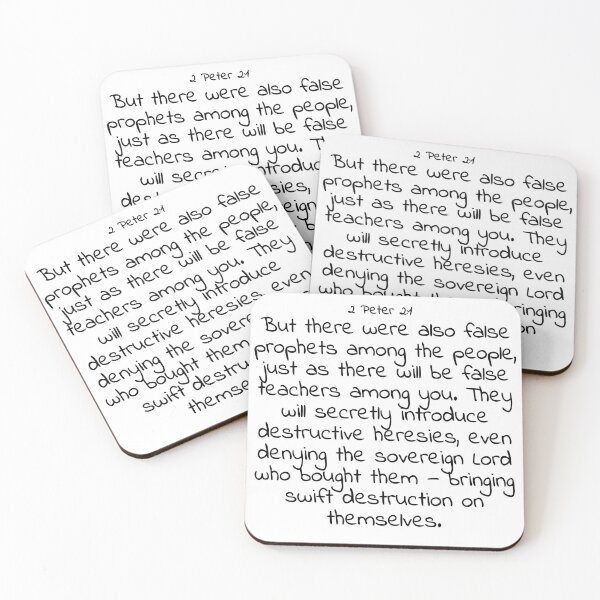 2 Peter 2:1
But there were also false
prophets among the people,
just as there will be false
teachers among you.
will secretly
2 Peter 2:1
But there were also false
prophets among the people,
just as there will be false
teachers among you. They
will secretly introduce
destructive heresies, even
denying the sovereign Lord
who
on
2 Peter 2:1
But there were also false
prophets among the people,
just as there will be false
teachers among you. They
will secretly introduce
destructive heresies, even
denying the
who bought them
swift
2 Peter 2:1
But there were also false
prophets among the people,
just as there will be false
teachers among you. They
will secretly introduce
destructive heresies, even
denying the sovereign Lord
who bought them – bringing
swift destruction on
themselves.